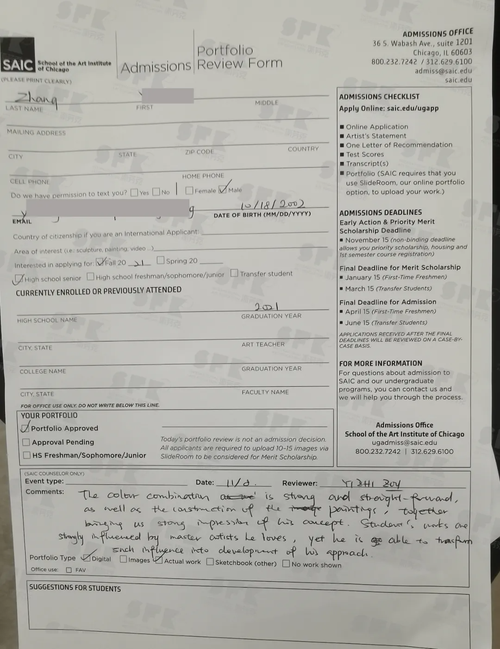 SAIC School of the Art Institute
of Chicago
Admissions
Portfolio
Review Form
ADMISSIONS OFFICE
36 S. Wabash Ave., suite 1201
Chicago, IL 60603
800.232.7242 / 312.629.6100
admiss@saic.edu
saic.edu
(PLEASE PRINT CLEARLY)
Zhang
LAST NAME FIRST MIDDLE
MAILING ADDRESS
CITY STATE ZIP CODE COUNTRY
CELL PHONE HOME PHONE
Do we have permission to text you? Yes No Female Male
10/18/2002
EMAIL DATE OF BIRTH (MM/DD/YYYY)
Country of citizenship if you are an International Applicant:
Area of interest (i.e. sculpture, painting, video...):
Interested in applying for: Fall 20 21 Spring 20
High school senior High school freshman/sophomore/junior Transfer student
CURRENTLY ENROLLED OR PREVIOUSLY ATTENDED
HIGH SCHOOL NAME GRADUATION YEAR
CITY, STATE ART TEACHER
COLLEGE NAME GRADUATION YEAR
CITY, STATE FACULTY NAME
FOR OFFICE USE ONLY. DO NOT WRITE BELOW THIS LINE.
YOUR PORTFOLIO
Portfolio Approved
Approval Pending
HS Freshman/Sophomore/Junior
Today's portfolio review is not an admission decision.
All applicants are required to upload 10-15 images via
SlideRoom to be considered for Merit Scholarship.
ADMISSIONS CHECKLIST
Apply Online: saic.edu/ugapp
Online Application
Artist's Statement
One Letter of Recommendation
Test Scores
Transcript(s)
Portfolio (SAIC requires that you
use SlideRoom, our online portfolio
option, to upload your work.)
ADMISSIONS DEADLINES
Early Action & Priority Merit
Scholarship Deadline
November 15 (non-binding deadline
allows you priority scholarship, housing and
1st semester course registration)
Final Deadline for Merit Scholarship
January 15 (First-Time Freshmen)
March 15 (Transfer Students)
Final Deadline for Admission
April 15 (First-Time Freshmen)
June 15 (Transfer Students)
APPLICATIONS RECEIVED AFTER THE FINAL
DEADLINES WILL BE REVIEWED ON A CASE-BY-
CASE BASIS.
FOR MORE INFORMATION
For questions about admission to
SAIC and our undergraduate
programs, you can contact us and
we will help you through the process.
Admissions Office
School of the Art Institute of Chicago
ugadmiss@saic.edu
800.232.7242 | 312.629.6100
(SAIC COUNSELOR ONLY)
Event type: Date: Reviewer: YISHI
Comments: The colour combination is strong and straight-forward,
as well as the construction of the paintings, together
bringing us strong impression of his concept. Student's works are
strongly influenced by master artists he loves, yet he is able to transform
such influence into development of his approach.
Portfolio Type Digital Images Actual work Sketchbook (other) No work shown
Office use: FAV
SUGGESTIONS FOR STUDENTS